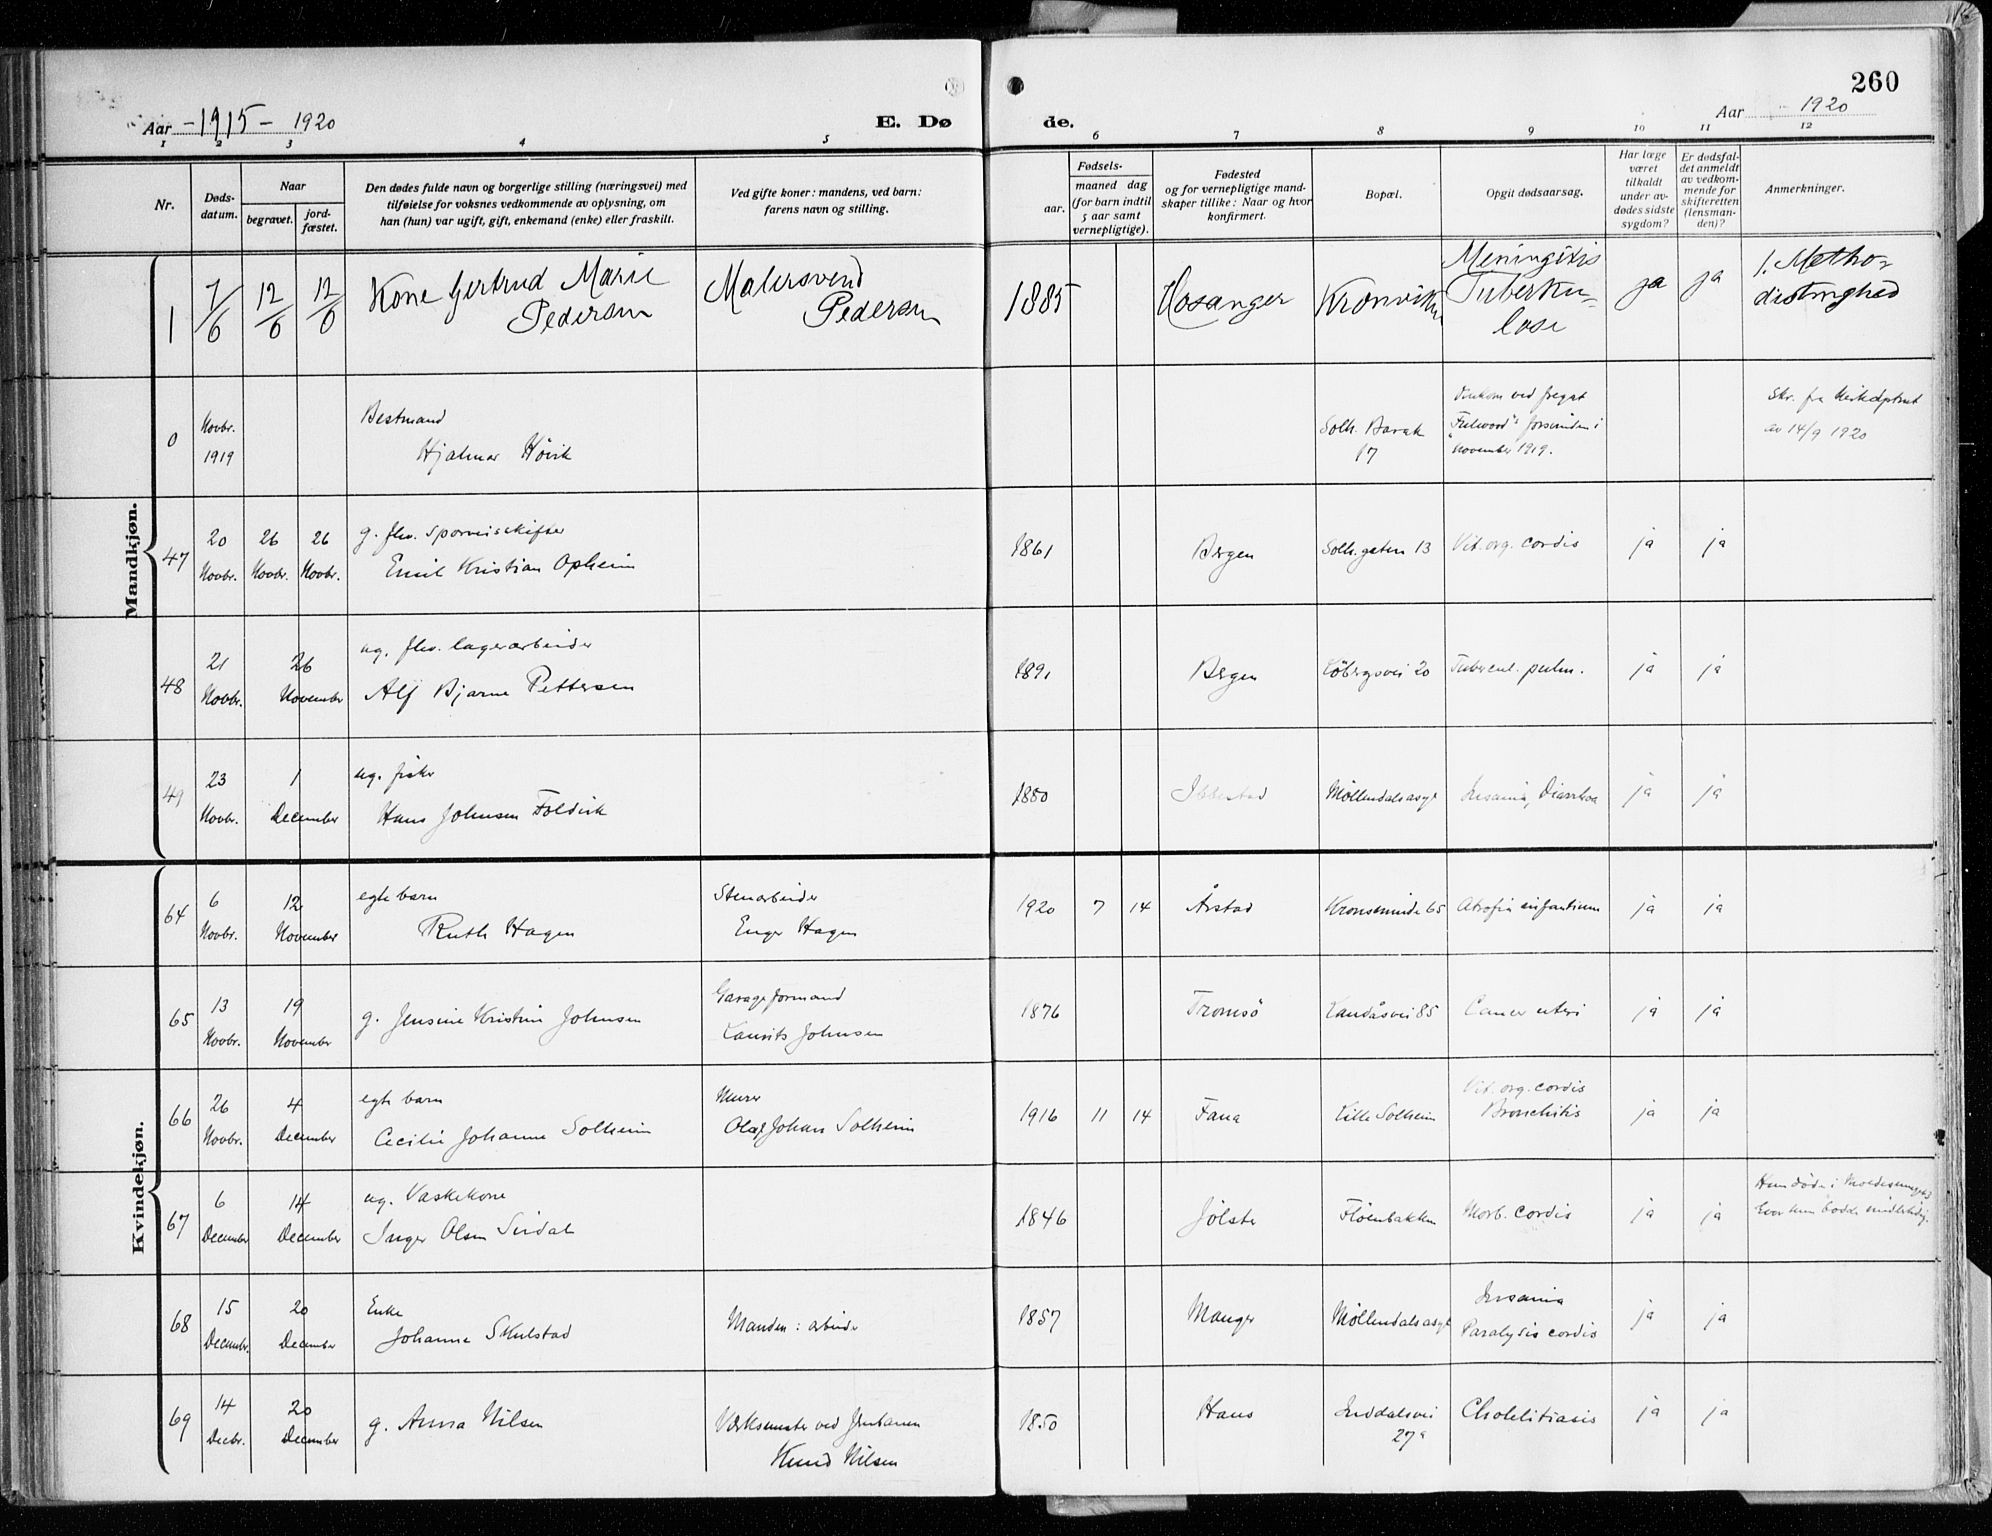 260
Aar -1915- 1920
E. Dø
de.
Aar 1920
1 2 3 4 5 6 7 8 9 10 11 12
Nr.
Døds-
datum.
Naar
begravet.
jord-
fæstet.
Den dødes fulde navn og borgerlige stilling (næringsvei) med
tilføielse for voksnes vedkommende av oplysning, om
han (hun) var ugift, gift, enkemand (enke) eller fraskilt.
Ved gifte koner: mandens, ved barn:
farens navn og stilling.
Fødsels-
aar.
maaned dag
(for barn indtil
5 aar samt
vernepligtige).
Fødested
og for vernepligtige mand-
skaper tillike: Naar og hvor
konfirmert.
Bopæl.
Opgit dødsaarsag.
Har læge
været
tilkaldt
under av-
dødes sidste
sygdom?
Er dødsfal-
det anmeldt
av vedkom-
mende for
skifteretten
(lensman-
den)?
Anmerkninger.
Mandkjøn.
1 7/6 12/6 12/6 Kone Gertrud Marie
Pedersen
Malersvend
Pedersen
1885 Hosanger Kronviken
Meningitis
Tuberku-
lose
ja ja
1. Metho-
distmghed
0
Novbr.
1919
Bestmand
Hjalmar Høvik
Solh. Barak
17
Omkom ved fregat
"Fulwood"s forsvinden i
november 1919.
Skr. fra Kirkedptmt
av 14/9 1920
47 20 Novbr. 26 Novbr. 26 Novbr.
g. fhv. Sporveisskifter
Emil Kristian Opheim
1861 Bergen Solh.gaten 13 Vit. org. cordis ja ja
48 21 Novbr. 26 November
ug. fhv. lagerarbeider
Alf Bjarne Pettersen
1891 Bergen Løbergsvei 20 Tubercul. pulm. ja ja
49 23 Novbr. 1 December
ug. fisker
Hans Johnsen Foldvik
1880 Ibbestad Møllendalsasyl Insania, Diarrhoe ja ja
Kvindekjøn.
64 6 Novbr. 12 November
egte barn
Ruth Hagen
Stenarbeider
Enger Hagen
1920 7 14 Årstad Kronsminde 65 Atrofia infantium ja ja
65 13 Novbr. 19 November
g. Jensine Kristine Johnsen
Garageformand
Laurits Johnsen
1876 Tromsö Landåsvei 85 Cancer uteri ja ja
66 26 Novbr. 4 December
egte barn
Cecilie Johanne Solheim
Murer
Olaf Johan Solheim
1916 11 14 Fana Lille Solheim
Vit. org. cordis
Bronchitis
ja ja
67 6 December 14 December
ug. Vaskekone
Inger Olsen Sindal
1846 Jølster Fløenbakken Morb. cordis ja ja
Hun døde i
hvor hun bodde midlertidig.
68 15 Decembr. 20 December
Enke
Johanne Skulstad
Manden: arbeider
1857 Manger Møllendalsasyl
Insania
Paralysis cordis
ja ja
69 14 Decbr. 20 December
g. Anna Nilsen
Værksmester ved Jernbanen
Knud Nilsen
1850 Haus
Inddalsvei
27a
Cholelitiasis ja ja